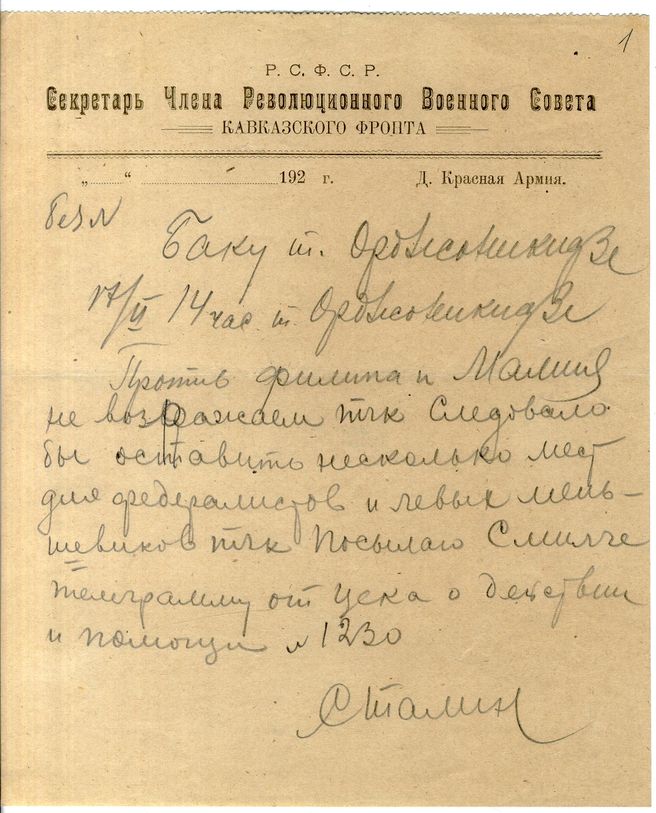 1
Р. С. Ф. С. Р.
Секретарь Члена Революционного Военного Совета
КАВКАЗСКОГО ФРОНТА
„ “ 192 г. Д. Красная Армия.
без N
Баку т. Орджоникидзе
17/II 14 час т. Орджоникидзе
Против филипа и Малия
не возражаем тчк Следовало
бы оставить несколько мест
для федералистов и левых мень-
шевиков тчк Посылаю Смилге
телеграмму от цека о действии
и помощи N 1230
Сталин